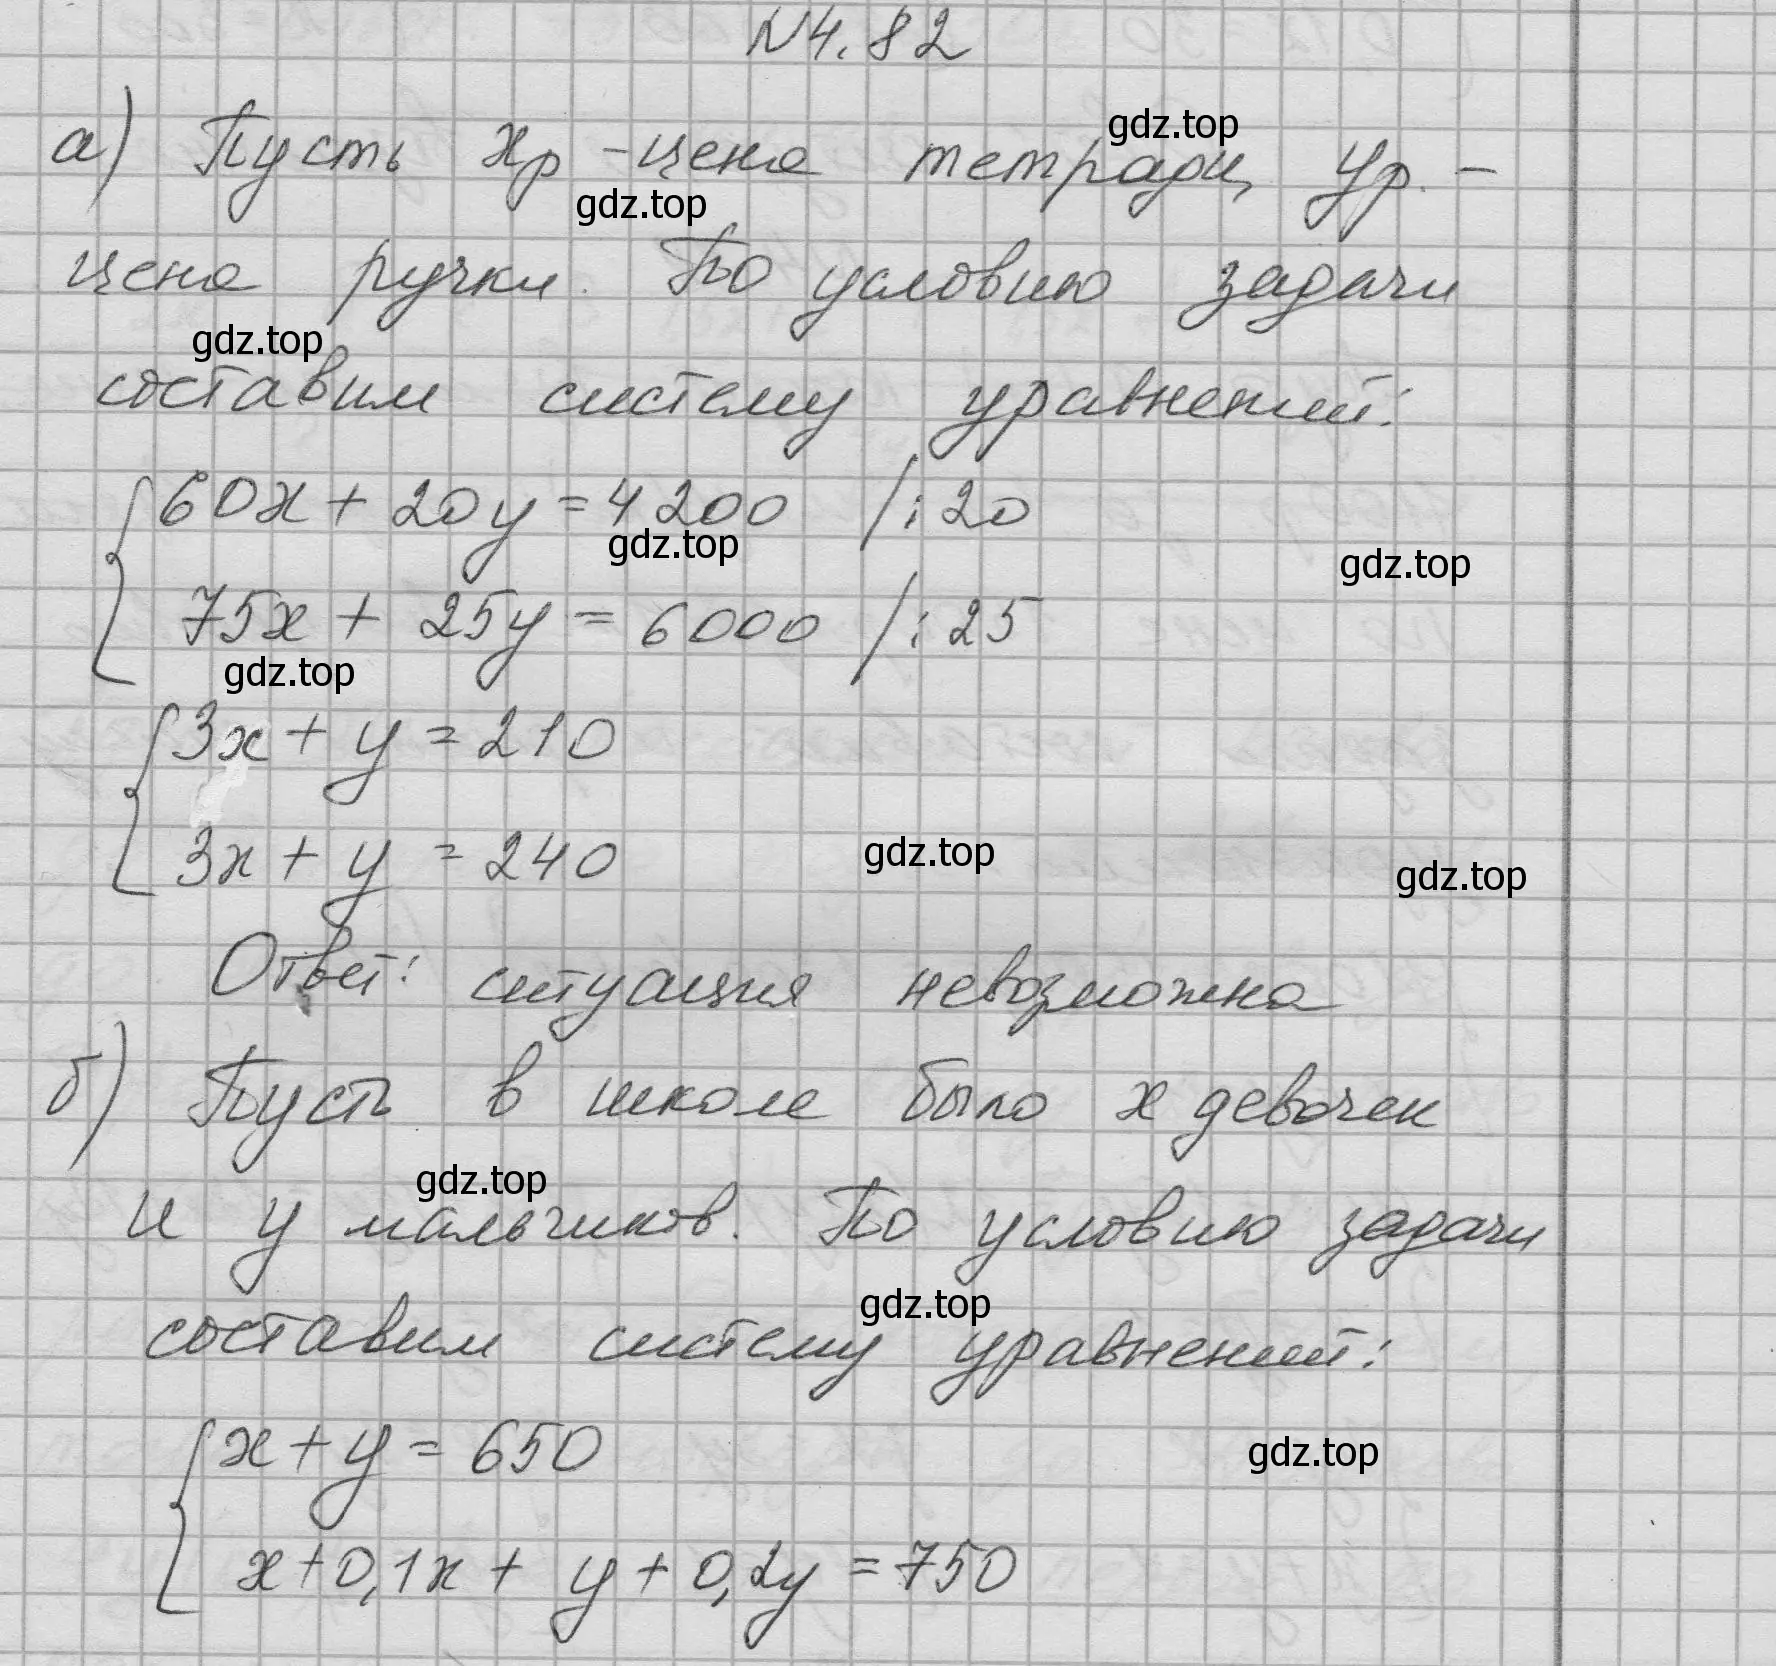 N4.82
а) Пусть xр - цена тетради, yр. -
цена ручки. По условию задачи
составим систему уравнений:
60x + 20y = 4200 /:20
75x + 25y = 6000 /:25
3x + y = 210
3x + y = 240
Ответ: ситуация невозможна
б) Пусть в школе было x девочек
и y мальчиков. По условию задачи
составим систему уравнений:
x + y = 650
x + 0,1x + y + 0,2y = 750
gdz.top
gdz.top
gdz.top
gdz.top
gdz.top
gdz.top
gdz.top
gdz.top
gdz.top
gdz.top
gdz.top